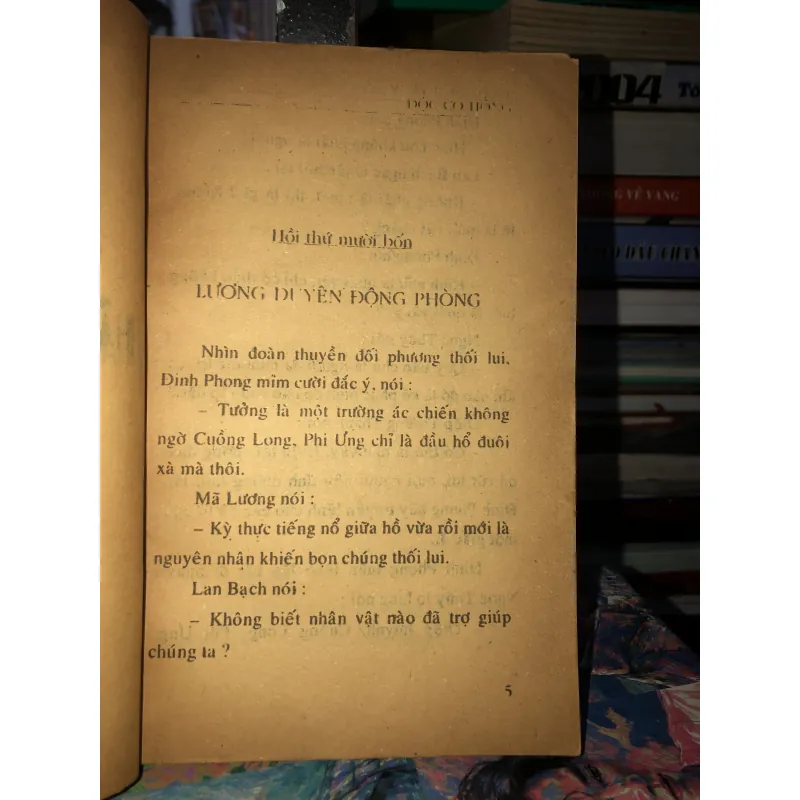 ĐỘC CÔ HỒNG
Hồi thứ mười bốn
LƯƠNG DUYÊN ĐỘNG PHÒNG
Nhìn đoàn thuyền đối phương thối lui,
Đinh Phong mỉm cười đắc ý, nói :
– Tưởng là một trường ác chiến không
ngờ Cuồng Long, Phi Ưng chỉ là đầu hổ đuôi
xà mà thôi.
Mã Lương nói :
– Kỳ thực tiếng nổ giữa hồ vừa rồi mới là
nguyên nhân khiến bọn chúng thối lui.
Lan Bạch nói :
– Không biết nhân vật nào đã trợ giúp
chúng ta ?
5
2004
VỀ VANG